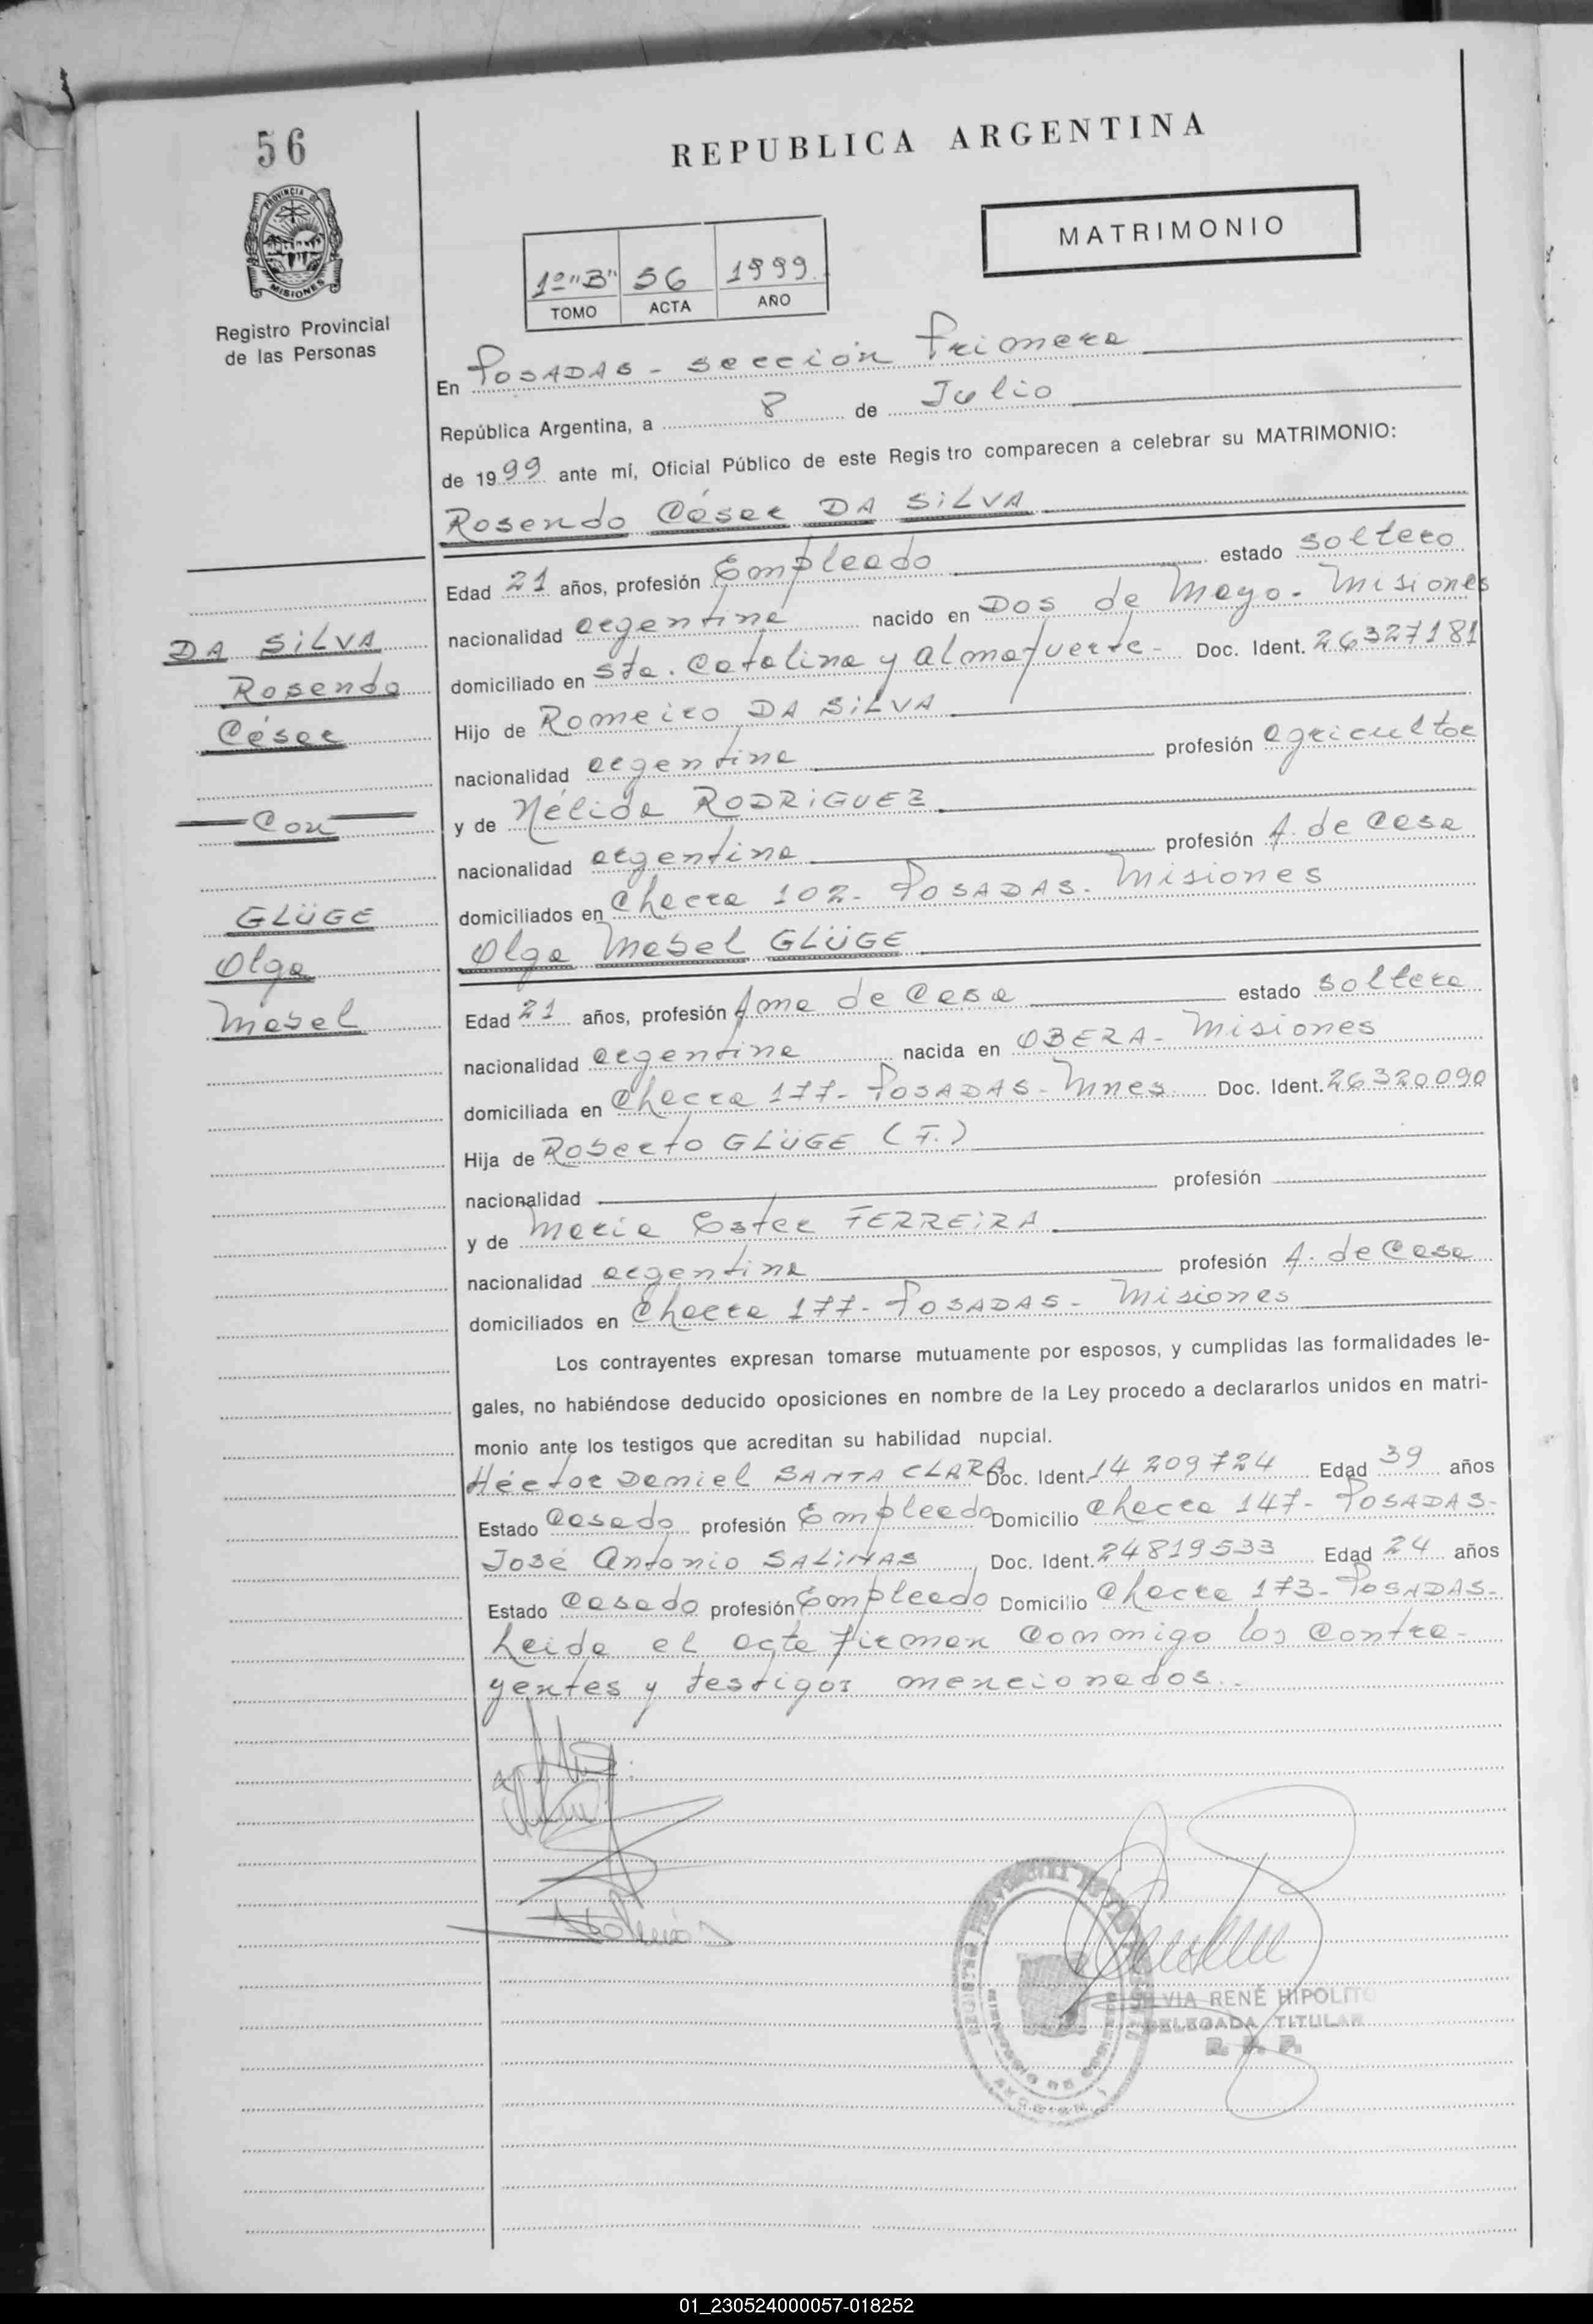 56
REPUBLICA ARGENTINA
PROVINCIA
MISIONES
MATRIMONIO
1º "B" 56 1999
TOMO ACTA AÑO
Registro Provincial
de las Personas
En POSADAS - sección Primera
República Argentina, a 8 de Julio
de 1999 ante mí, Oficial Público de este Regis tro comparecen a celebrar su MATRIMONIO:
Rosendo César DA SiLVA
Edad 21 años, profesión Empleado estado soltero
nacionalidad argentina nacido en Dos de Mayo - Misiones
domiciliado en Sta. Catalina y Almafuerte - Doc. Ident. 26327181
Hijo de Romeiro DA SiLVA
nacionalidad argentina profesión agricultor
y de Nélida RODRiGUEZ
nacionalidad argentina profesión A. de Casa
domiciliados en Chacra 102 - POSADAS - Misiones
DA SiLVA
Rosendo
César
Con
GLÜGE
Olga
Mabel
Olga Mabel GLÜGE
Edad 21 años, profesión Ama de Casa estado soltera
nacionalidad argentina nacida en OBERA - Misiones
domiciliada en Chacra 177 - POSADAS - Mnes. Doc. Ident. 26320090
Hija de Roberto GLÜGE (F.)
nacionalidad profesión
y de Maria Ester FERREiRA
nacionalidad argentina profesión A. de Casa
domiciliados en Chacra 177 - POSADAS - Misiones
Los contrayentes expresan tomarse mutuamente por esposos, y cumplidas las formalidades le-
gales, no habiéndose deducido oposiciones en nombre de la Ley procedo a declararlos unidos en matri-
monio ante los testigos que acreditan su habilidad nupcial.
Héctor Daniel SANTA CLARA Doc. Ident. 14 209724 Edad 39 años
Estado Casado profesión Empleado Domicilio Chacra 147 - POSADAS -
José Antonio SALiNAS Doc. Ident. 24819533 Edad 24 años
Estado Casado profesión Empleado Domicilio Chacra 173 - POSADAS -
Leida el acta firman conmigo los contra-
yentes y testigos mencionados.
SILVIA RENÉ HIPOLITO
DELEGADA TITULAR
R. P. P.
01_230524000057-018252